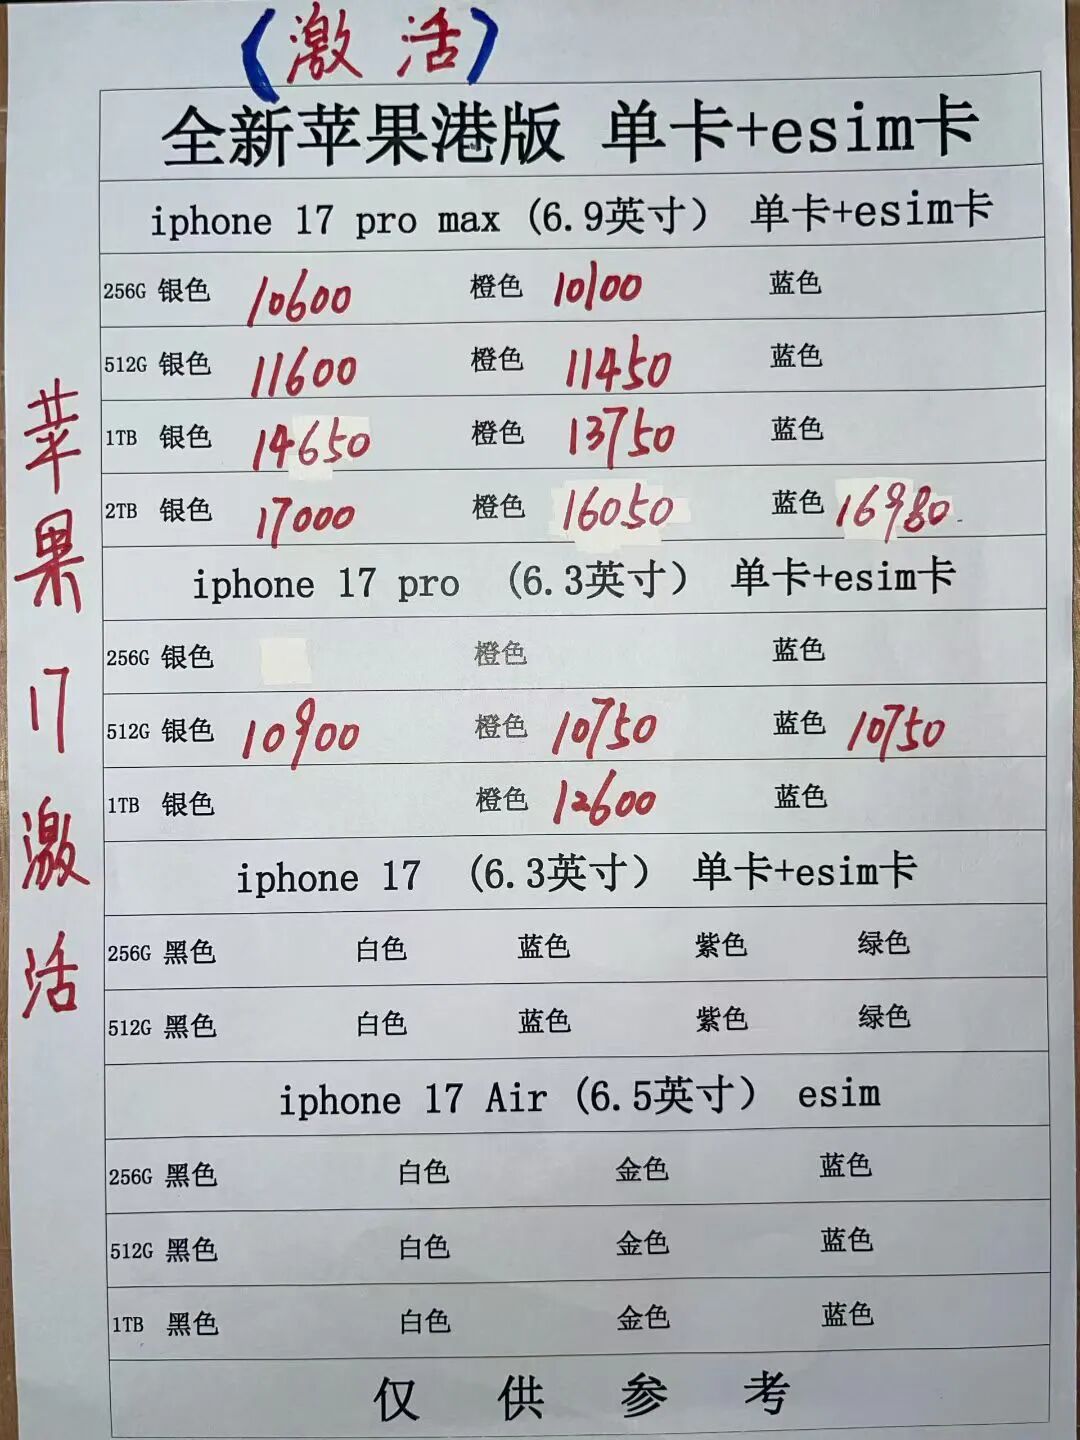 （激活）
全新苹果港版 单卡+esim卡
iphone 17 pro max (6.9英寸） 单卡+esim卡
256G 银色 10600 橙色 10100 蓝色
512G 银色 11600 橙色 11450 蓝色
1TB 银色 14650 橙色 13750 蓝色
2TB 银色 17000 橙色 16050 蓝色 16980
iphone 17 pro （6.3英寸） 单卡+esim卡
256G 银色 橙色 蓝色
512G 银色 10900 橙色 10750 蓝色 10750
1TB 银色 橙色 12600 蓝色
iphone 17 （6.3英寸） 单卡+esim卡
256G 黑色 白色 蓝色 紫色 绿色
512G 黑色 白色 蓝色 紫色 绿色
iphone 17 Air (6.5英寸） esim
256G 黑色 白色 金色 蓝色
512G 黑色 白色 金色 蓝色
1TB 黑色 白色 金色 蓝色
仅供参考
苹果17激活